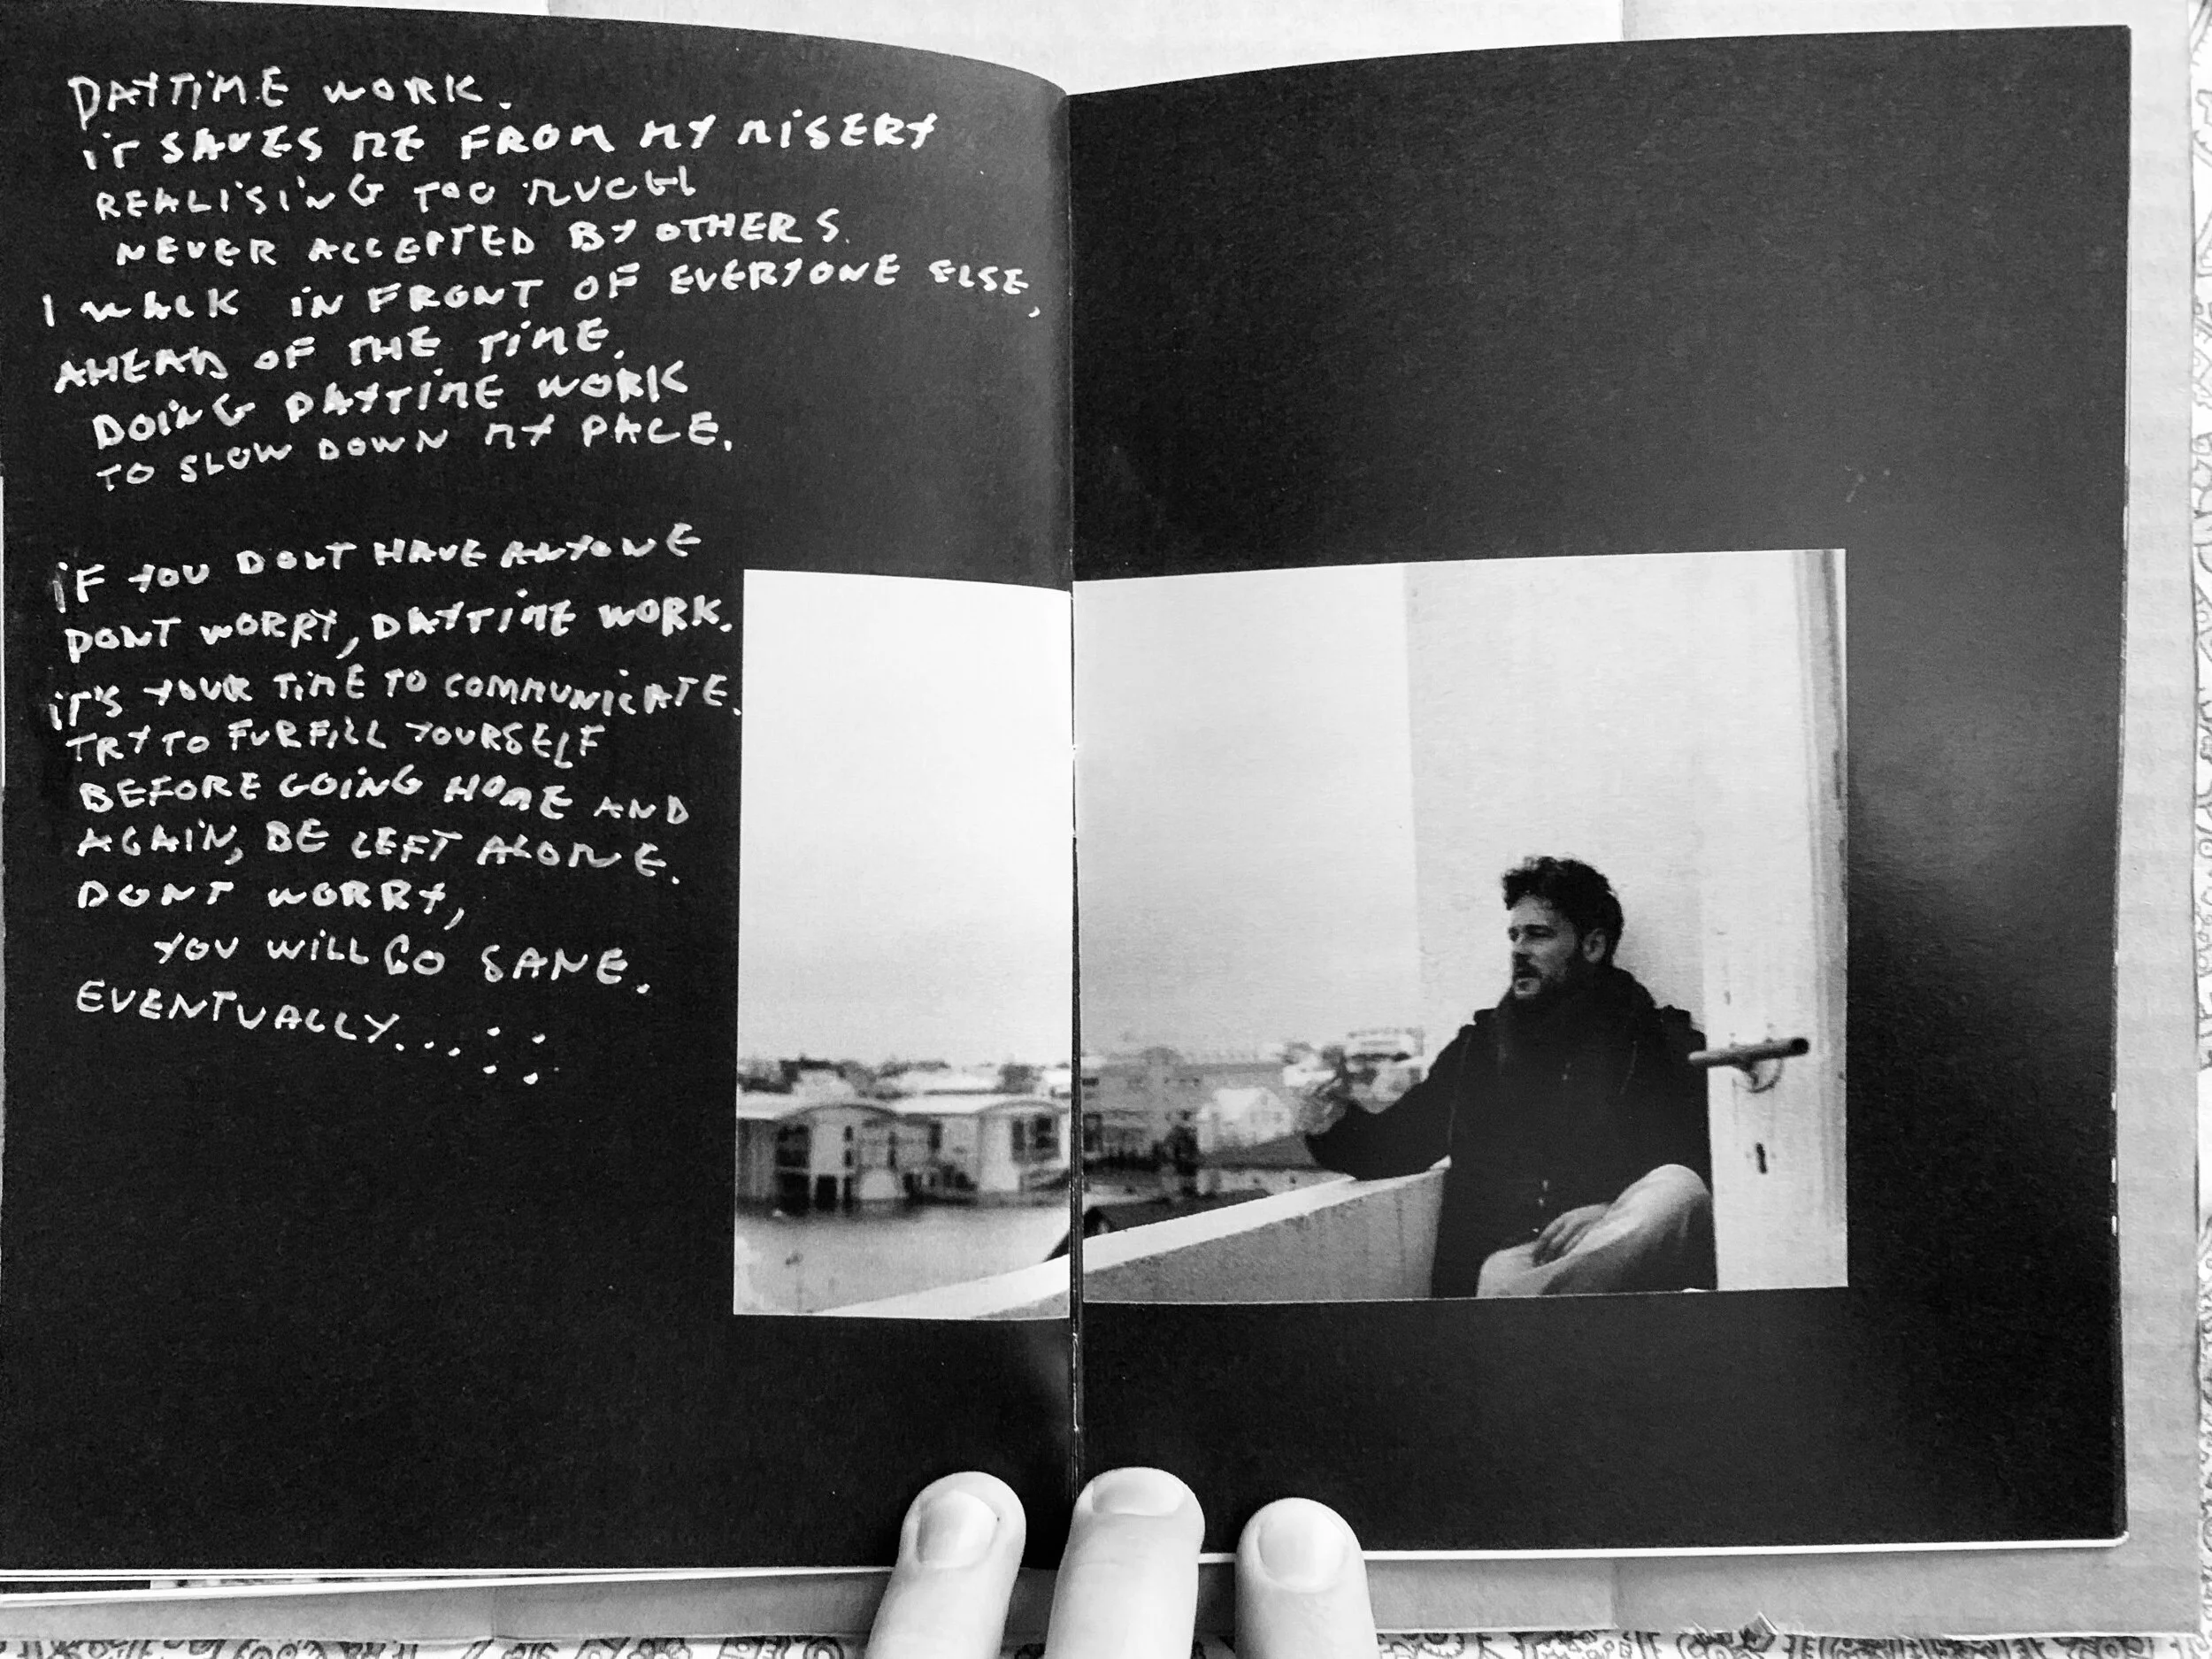 DAYTIME WORK.
IT SAVES ME FROM MY MISERY
REALISING TOO MUCH
NEVER ACCEPTED BY OTHERS.
I WALK IN FRONT OF EVERYONE ELSE,
AHEAD OF THE TIME.
DOING DAYTIME WORK
TO SLOW DOWN MY PACE.
IF YOU DONT HAVE ANYONE
DONT WORRY, DAYTIME WORK.
IT'S YOUR TIME TO COMMUNICATE.
TRY TO FURFILL YOURSELF
BEFORE GOING HOME AND
AGAIN, BE LEFT ALONE.
DONT WORRY,
YOU WILL GO SANE.
EVENTUALLY... : :